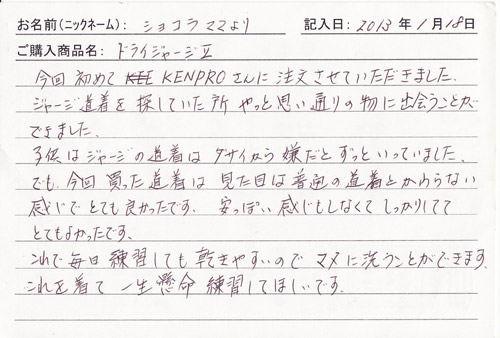 お名前(ニックネーム): ショコラママより 記入日: 2013 年 1月 18日
ご購入商品名: ドライジャージⅡ
今回 初めて KENPROさんに 注文させていただきました。
ジャージ道着を 探していた所 やっと思い通りの物に出会うことが
できました。
子供は ジャージの道着は ダサイから 嫌だと ずっといっていました。
でも、今回 買った道着は 見た目は 普通の道着とかわらない
感じで とても良かったです。 安っぽい感じもしなくて しっかりしてて
とてもよかったです。
これで 毎日 練習しても 乾きやすいので マメに洗うことができます。
これを着て 一生懸命 練習してほしいです。